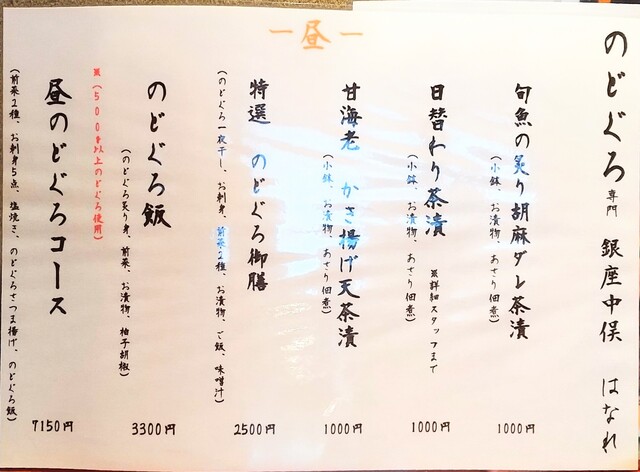 のどぐろ専門 銀座中俣 はなれ
一昼一
旬魚の炙り胡麻ダレ茶漬
(小鉢、お漬物、あさり佃煮)
1000円
日替わり茶漬
(小鉢、お漬物、あさり佃煮)
※詳細スタッフまで
1000円
甘海老 かき揚げ天茶漬
(小鉢、お漬物、あさり佃煮)
1000円
特選 のどぐろ御膳
(のどぐろ一夜干し、お刺身、前菜2種、お漬物、ご飯、味噌汁)
2500円
のどぐろ飯
(のどぐろ炙り身、前菜、お漬物、柚子胡椒)
3300円
※(500g以上のどぐろ使用)
昼のどぐろコース
(前菜2種、お刺身5点、塩焼き、のどぐろさつま揚げ、のどぐろ飯)
7150円